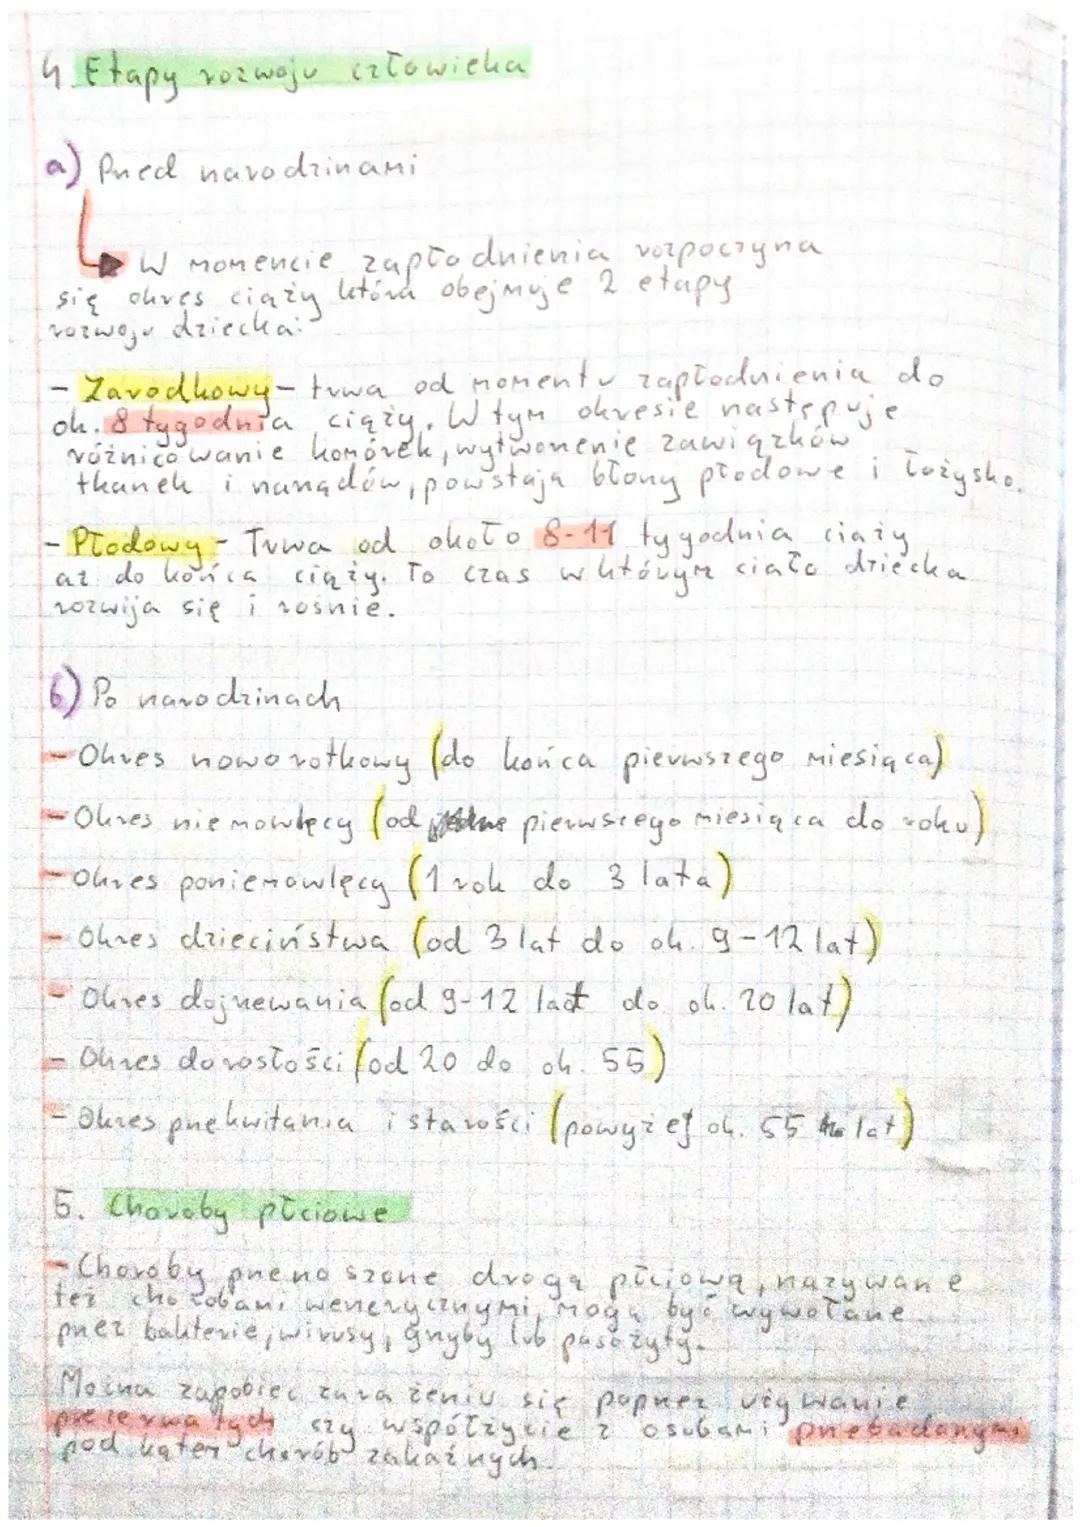 4. Etapy rozwoju człowieka
a) Przed narodzinami
W momencie zapłodnienia rozpoczyna
się okres ciąży która obejmuje 2 etapy
rozwoju dziecka:
- Zarodkowy - trwa od momentu zapłodnienia do
ok. 8 tygodnia ciąży. W tym okresie następuje
różnicowanie komórek, wytworzenie zawiązków
tkanek i narządów, powstają błony płodowe i łożysko.
- Płodowy - Trwa od około 8-11 tygodnia ciąży
aż do końca ciąży. To czas w którym ciało dziecka
rozwija się i rośnie.
b) Po narodzinach
- Okres noworotkowy (do końca pierwszego miesiąca)
- Okres niemowlęcy (od pierwszego miesiąca do roku)
- Okres poniemowlęcy (1 rok do 3 lata)
- Okres dzieciństwa (od 3 lat do ok. 9-12 lat)
- Okres dojrzewania (od 9-12 lat do ok. 20 lat)
- Okres dorosłości (od 20 do ok. 55)
- Okres przekwitania i starości (powyżej ok. 55 lat)
5. Choroby płciowe
- Choroby przenoszone drogą płciową, nazywane
też chorobami wenerycznymi, mogą być wywołane
przez bakterie, wirusy, grzyby lub pasożyty.
Można zapobiec zarażeniu się poprzez używanie
prezerwatych czy współżycie z osobami przebadanymi
pod kątem chorób zakaźnych.